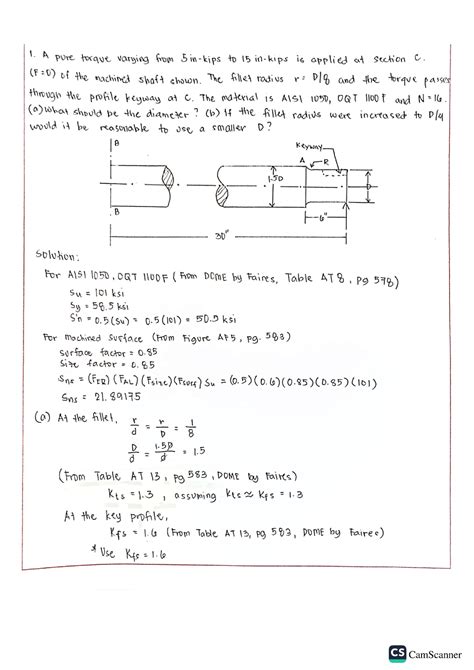 1. A pure torque varying from 5 in-kips to 15 in-kips is applied at section C.
(F=0) of the machined shaft shown. The fillet radius r = D/8 and the torque passes
through the profile keyway at C. The material is AISI 1050, OQT 1100 F and N = 1.6.
(a) What should be the diameter? (b) If the fillet radius were increased to D/4
would it be reasonable to use a smaller D?
B
Keyway
A
R
1.5D
D
B
6"
30"
Solution:
For AISI 1050, OQT 1100F (From DOME by Faires, Table AT8, pg 578)
Su = 101 ksi
Sy = 58.5 ksi
S'n = 0.5(Su) = 0.5(101) = 50.5 ksi
For machined Surface (From Figure AF5, pg. 583)
surface factor = 0.85
Size factor = 0.85
Sns = (FEQ)(FAL)(Fsize)(Fsurf) Su = (0.5)(0.6)(0.85)(0.85)(101)
Sns = 21.89175
(a) At the fillet,
r/d = r/D = 1/8
D/d = 1.5D/D = 1.5
(From Table AT 13, pg 583, DOME by Faires)
Kts = 1.3, assuming Kts ≈ Kfs = 1.3
At the key profile,
Kfs = 1.6 (From Table AT 13, pg 583, DOME by Faires)
* Use Kfs = 1.6
CS CamScanner